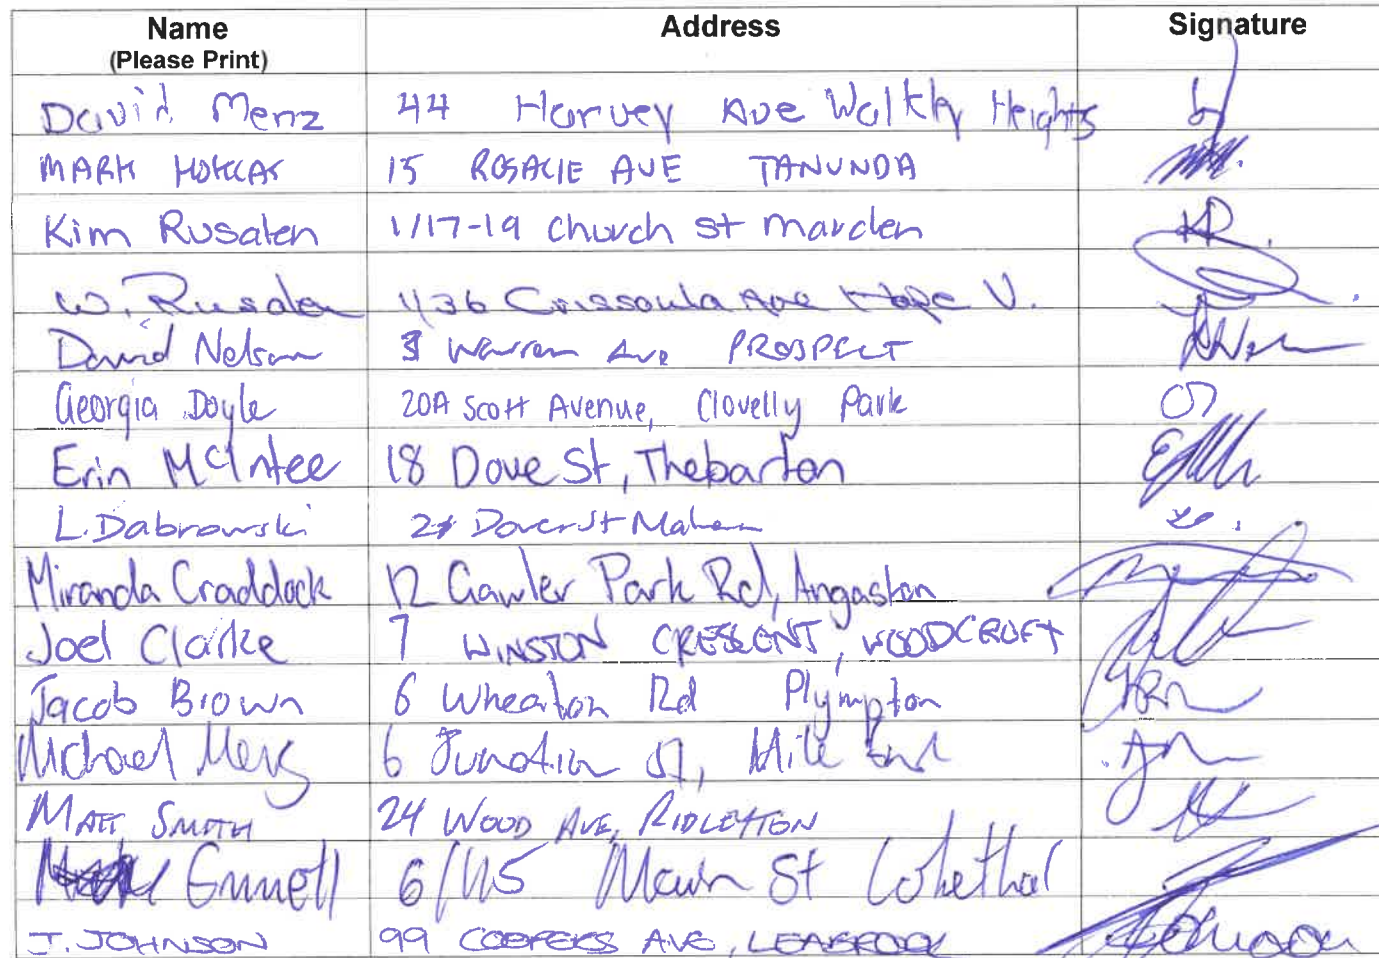 Name Address Signature
(Please Print)
David Menz 44 Harvey Ave Walkly Heights
MARK 15 ROSALIE AVE TANUNDA
Kim Rusalen 1/17-19 Church st marden KR
W. Rusalen 1/36 Ave Hope V.
David Nelson 3 Warren Ave PROSPECT
Georgia Doyle 20A Scott Avenue, Clovelly Park
Erin McEntee 18 Dove St, Thebarton
L. Dabrowski Dover St
Miranda Craddock 12 Gawler Park Rd, Angaston
Joel Clarke 7 WINSTON CRESCENT, WOODCROFT
Jacob Brown 6 Wheaton Rd Plympton
Michael 6 Junction St, Mile End
MATT SMITH 24 WOOD AVE, RIDLEYTON
6/115 Main St
J. JOHNSON 99 COOPERS AVE, LEABROOK